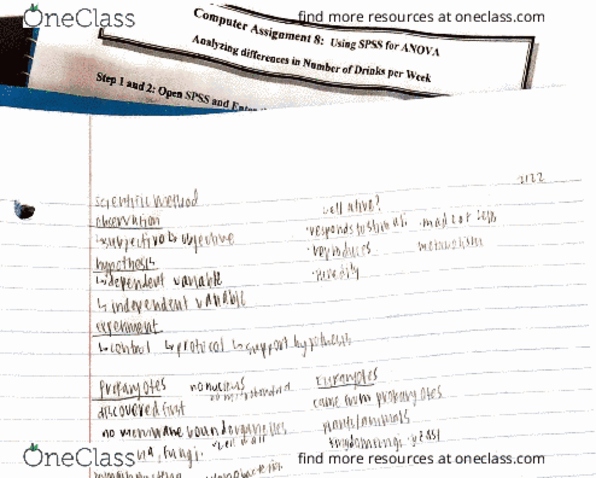 OneClass
find more resources at oneclass.com
Computer Assignment 8: Using SPSS for ANOVA
Analyzing differences in Number of Drinks per Week
Step 1 and 2: Open SPSS and Enter
2122
scientific method
observation
↳ subjective ↳ objective
hypothesis
↳ dependent variable
↳ independent variable
experiment
↳ control ↳ protocol ↳ support hypothesis
cell alive?
· responds to stimuli · mad cot
· reproduces metabolism
· heredity
Prokaryotes no nucleus
discovered first
no membrane bound organelles
fungi. cell wall
Eukaryotes
came from prokaryotes
plants/animals
OneClass
find more resources at oneclass.com